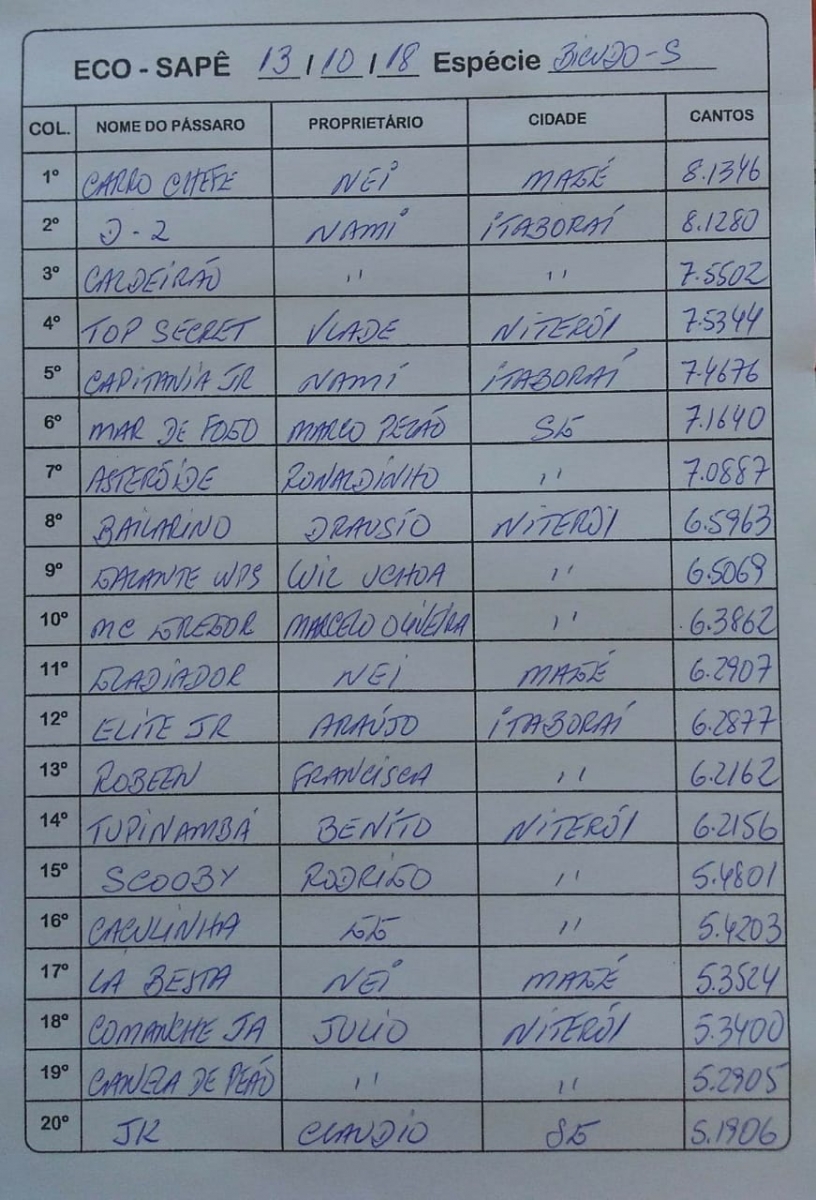 ECO - SAPÊ 13/10/18 Espécie BICUDO-S
COL. NOME DO PÁSSARO PROPRIETÁRIO CIDADE CANTOS
1º CARRO CHEFE NEI MAGÉ 8.1346
2º D-2 NAMI ITABORAÍ 8.1280
3º CALDEIRÃO '' '' 7.5502
4º TOP SECRET VLADE NITERÓI 7.5344
5º CAPITANIA JR NAMI ITABORAÍ 7.4676
6º MAR DE FOGO MARCO PEZÃO SG 7.1640
7º ASTERÓIDE RONALDINHO '' 7.0887
8º BAILARINO DRAUSIO NITERÓI 6.5963
9º GALANTE WPS WIL UCHOA '' 6.5069
10º MC GREGOR MARCELO OLIVEIRA '' 6.3862
11º GLADIADOR NEI MAGÉ 6.2907
12º ELITE JR ARAÚJO ITABORAÍ 6.2877
13º ROBEEN FRANCISCA '' 6.2162
14º TUPINAMBÁ BENITO NITERÓI 6.2156
15º SCOOBY RODRIGO '' 5.4801
16º CAÇULINHA GG '' 5.4203
17º LA BESTA NEI MAGÉ 5.3524
18º COMANCHE JA JULIO NITERÓI 5.3400
19º CANELA DE PEÃO '' '' 5.2905
20º JR CLAUDIO SG 5.1906